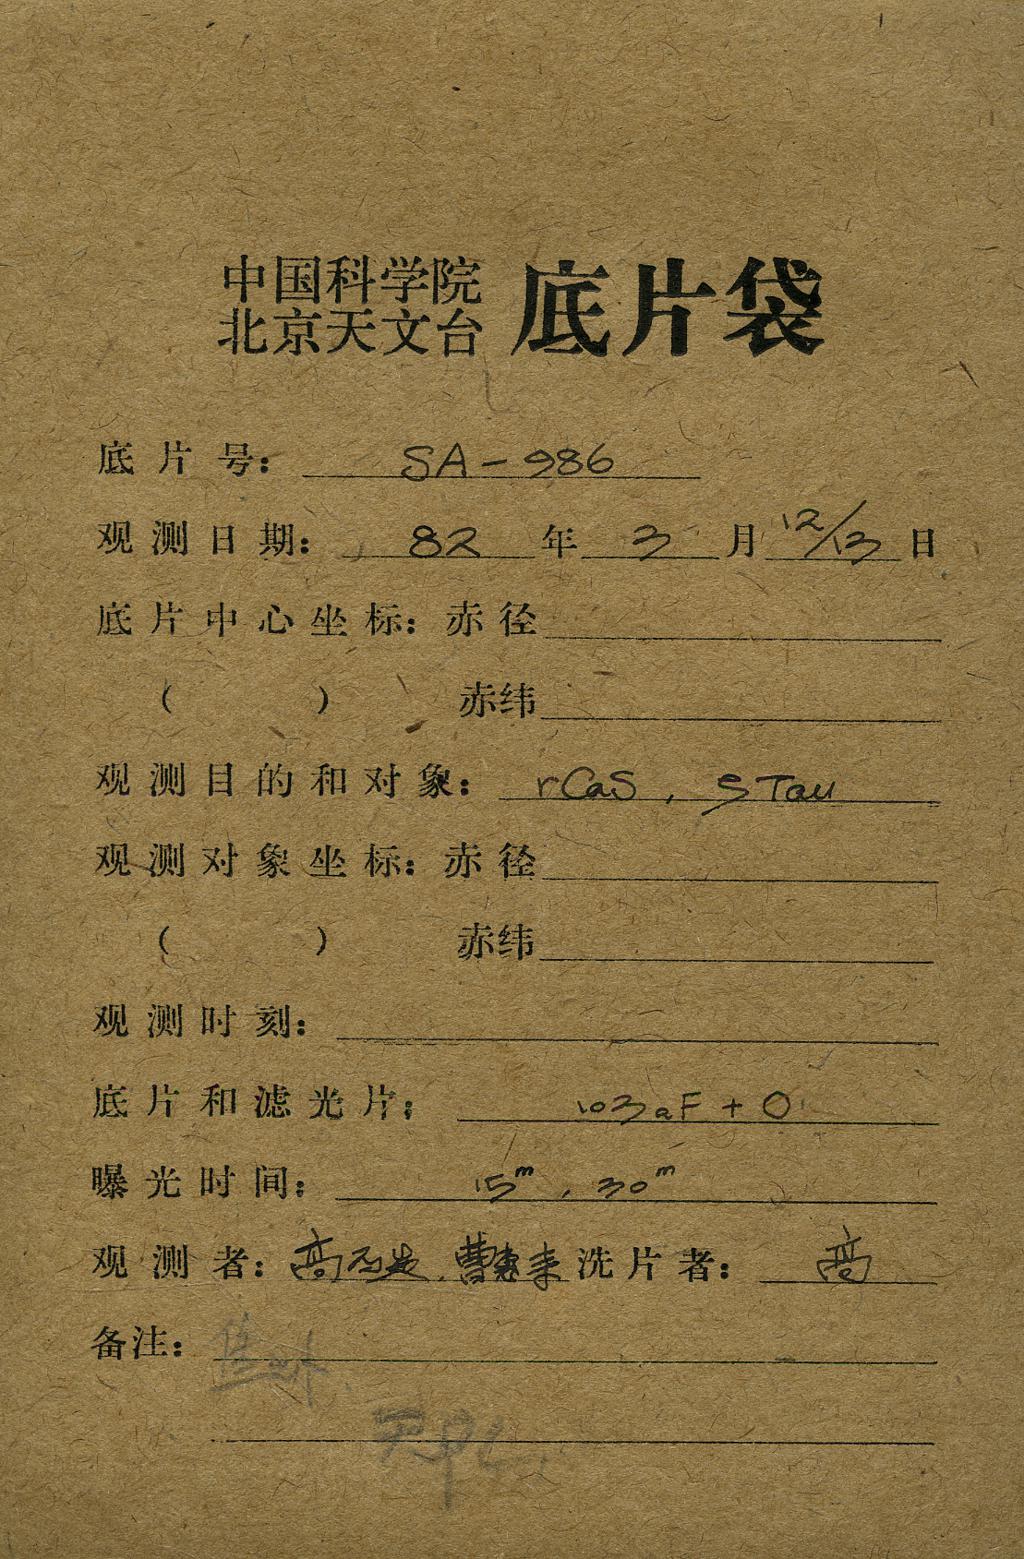 中国科学院
北京天文台 底片袋
底片号： SA-986
观测日期： 82 年 3 月 12/13 日
底片中心坐标：赤径
（ ） 赤纬
观测目的和对象： rCaS , STau
观测对象坐标：赤径
（ ） 赤纬
观测时刻：
底片和滤光片： 103aF + O
曝光时间： 15m , 30m
观测者： 高 曹惠来 洗片者： 高
备注：